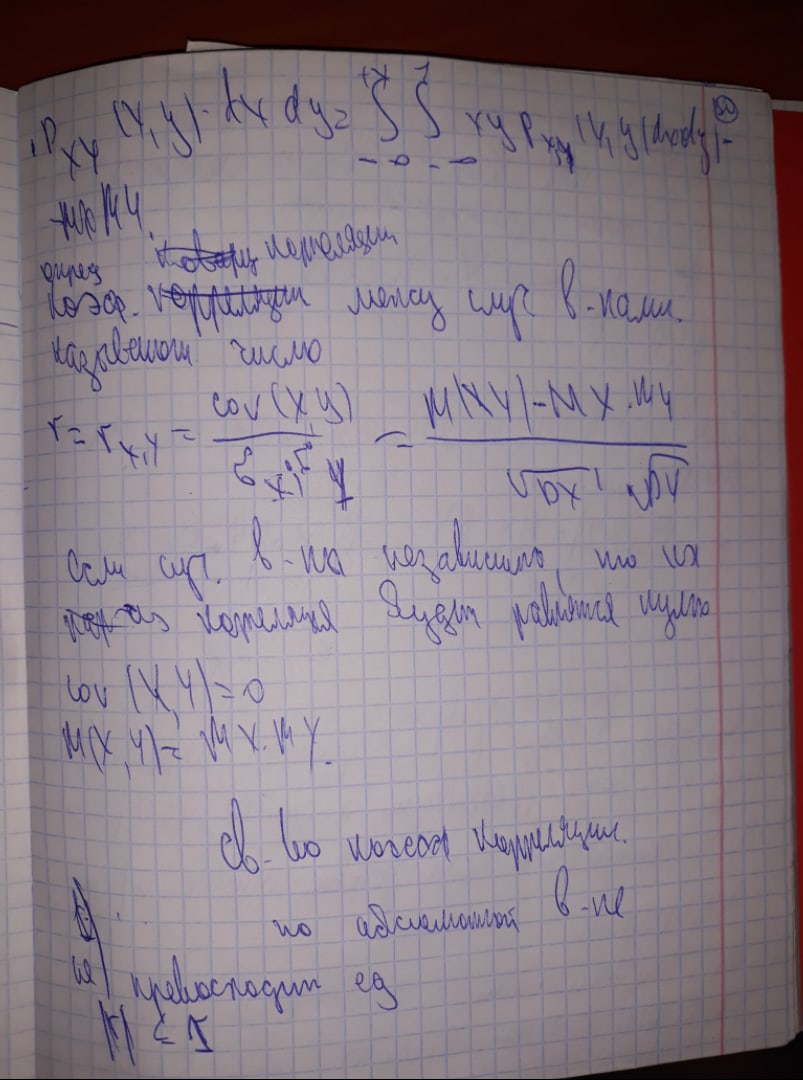 P_XY (X,y) · dx dy = ∫∫ xy p_x,y (X, y) dxdy -
- MX MY.
опред корреляции
Коэф. между случ в-нами.
называют число
r = r_X,Y = cov(X,y) / = M(XY) - MX · MY / √DX · √DY
Если случ. в-на независимо, то их
корреляция будет равнятся нулю
cov (X,Y) = 0
M(X,Y) = MX · MY.
Св-во коэф корреляции.
по абсолютной в-не
не превосходит ед
|r| ≤ 1